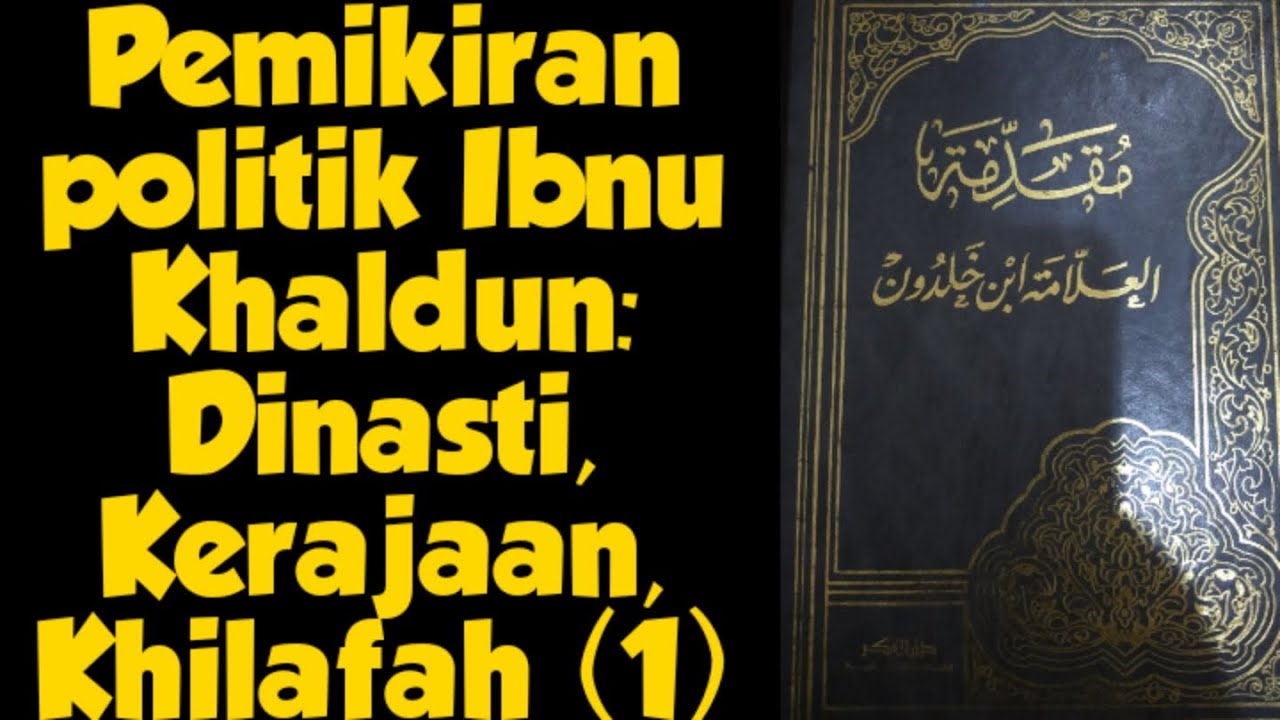 Pemikiran
politik Ibnu
Khaldun:
Dinasti,
Kerajaan,
Khilafah (1)
مُقَدِّمَة
العَلَّامَة ابْن خَلدُون